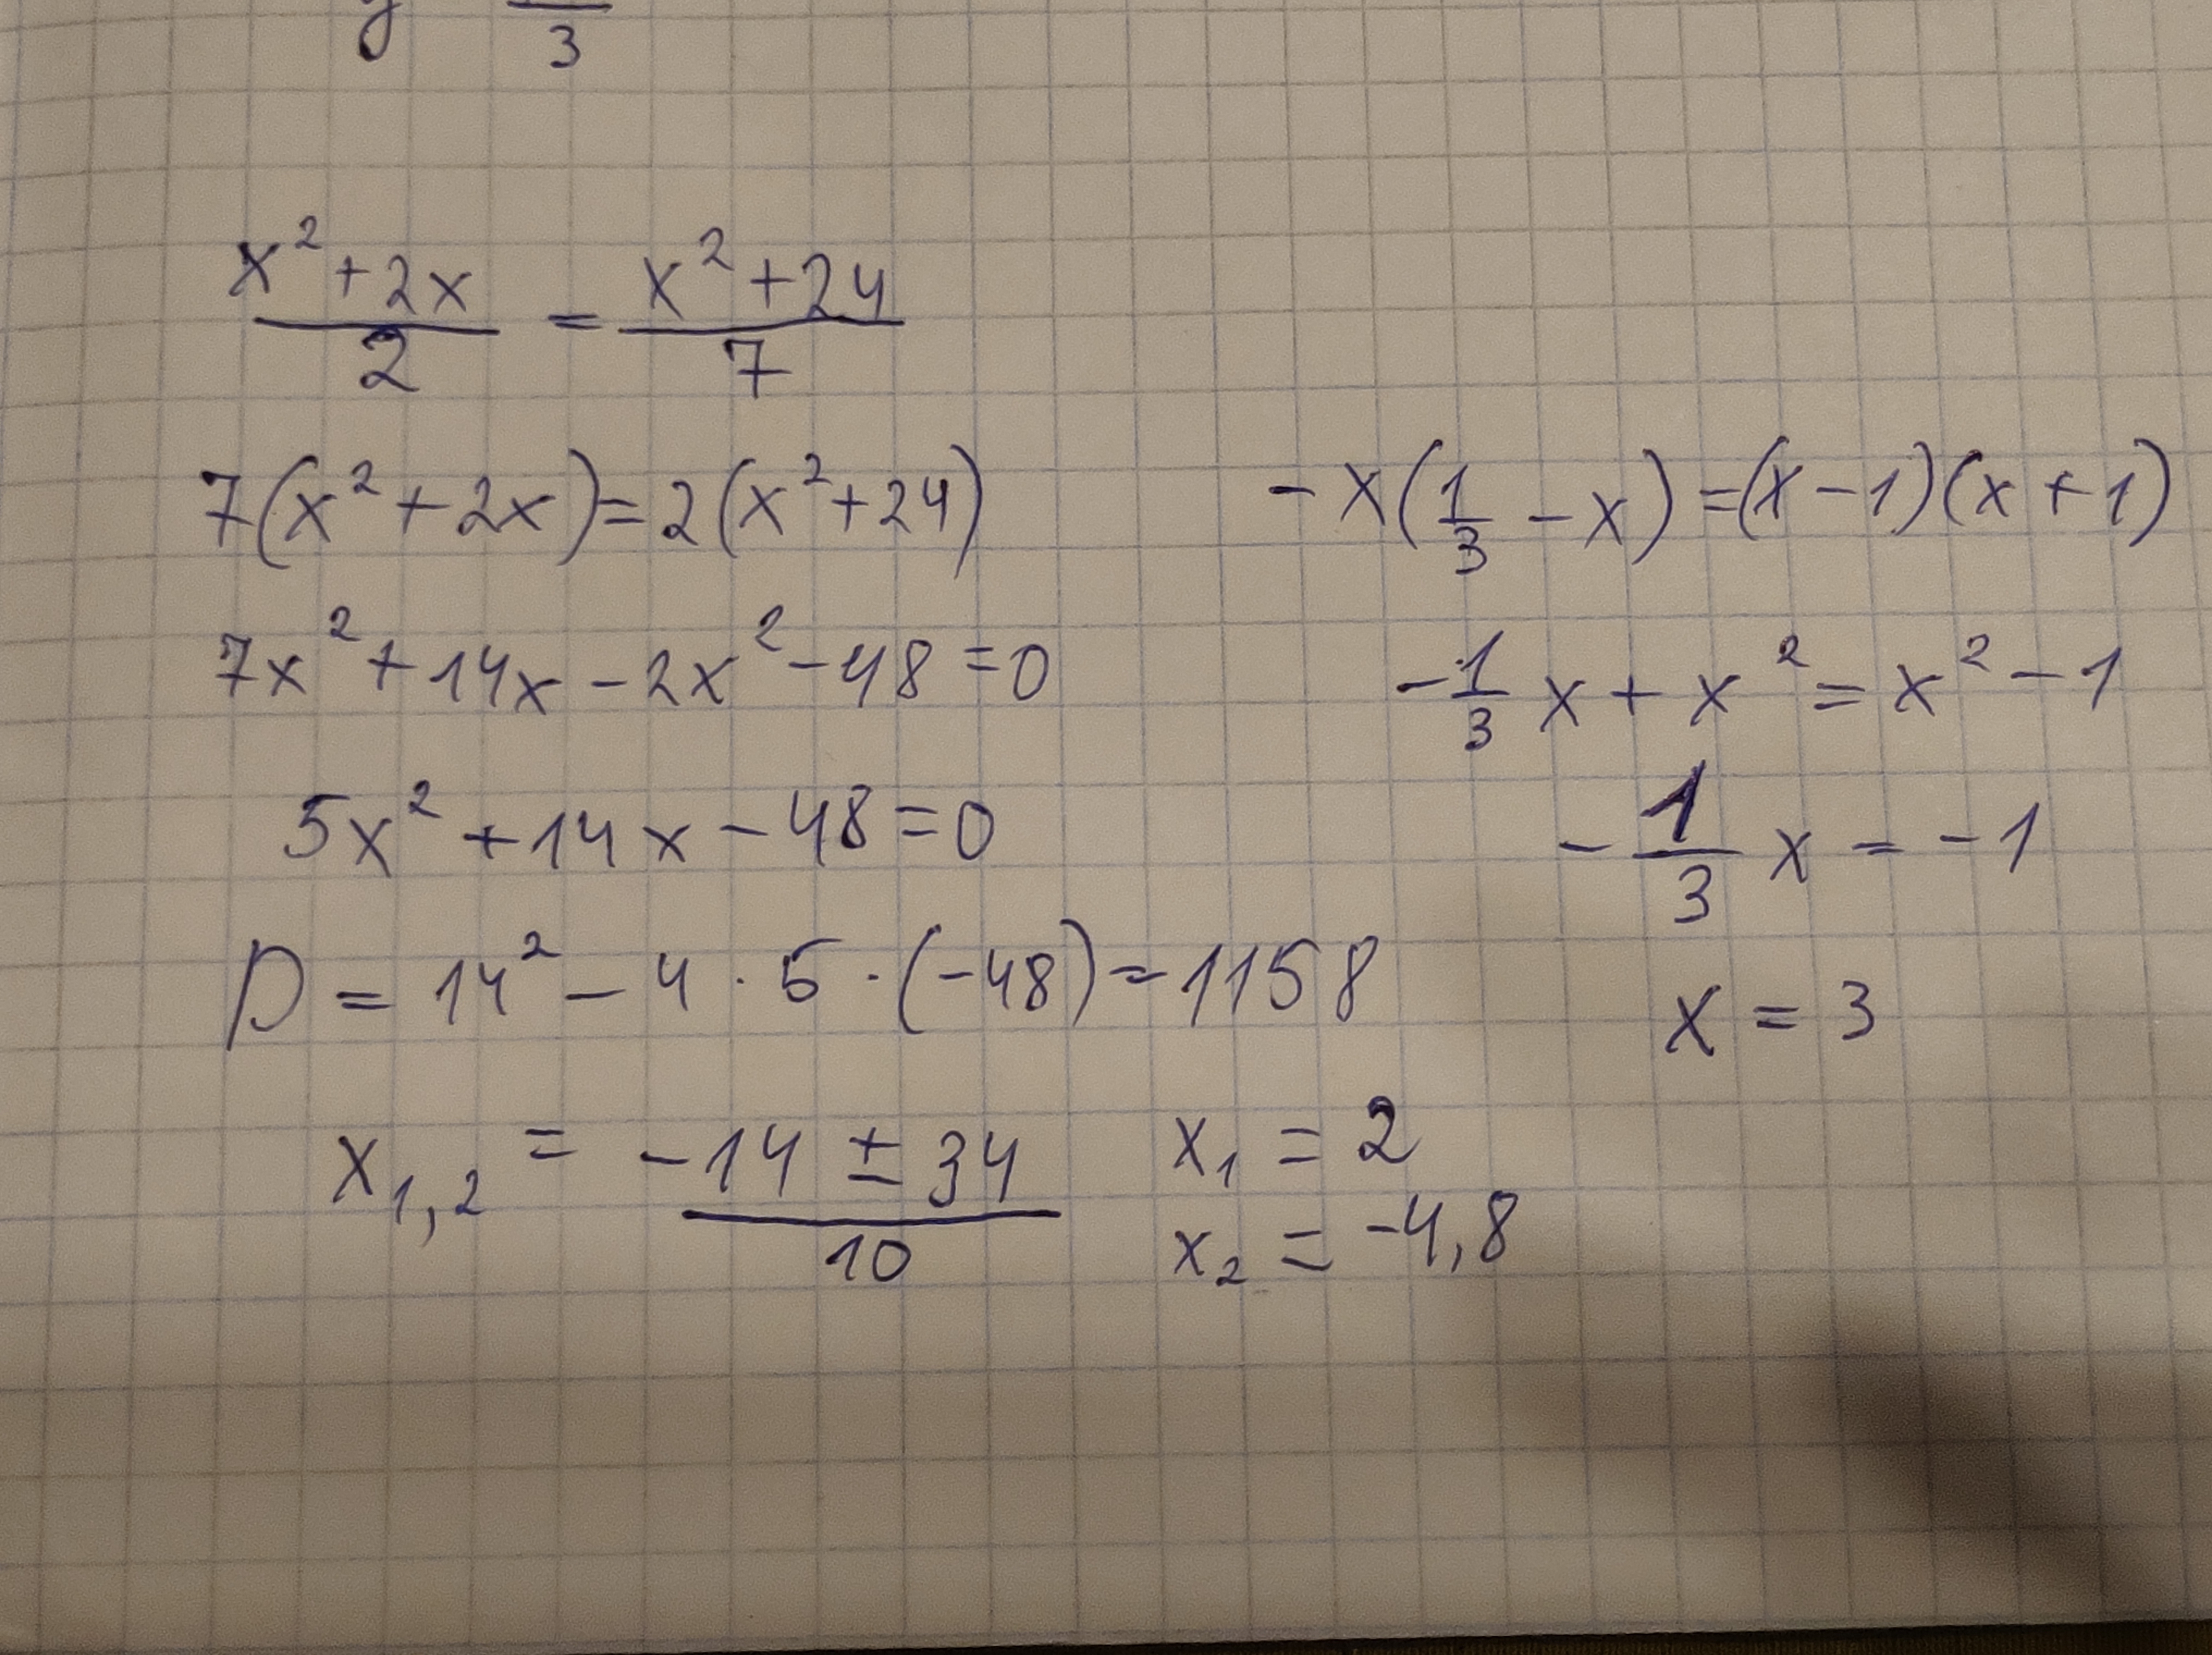 y 3
x² + 2x / 2 = x² + 24 / 7
7(x² + 2x) = 2(x² + 24)
7x² + 14x - 2x² - 48 = 0
5x² + 14x - 48 = 0
D = 14² - 4 · 5 · (-48) = 1158
x₁,₂ = -14 ± 34 / 10
x₁ = 2
x₂ = -4,8
- x(1/3 - x) = (x - 1)(x + 1)
- 1/3 x + x² = x² - 1
- 1/3 x = - 1
x = 3